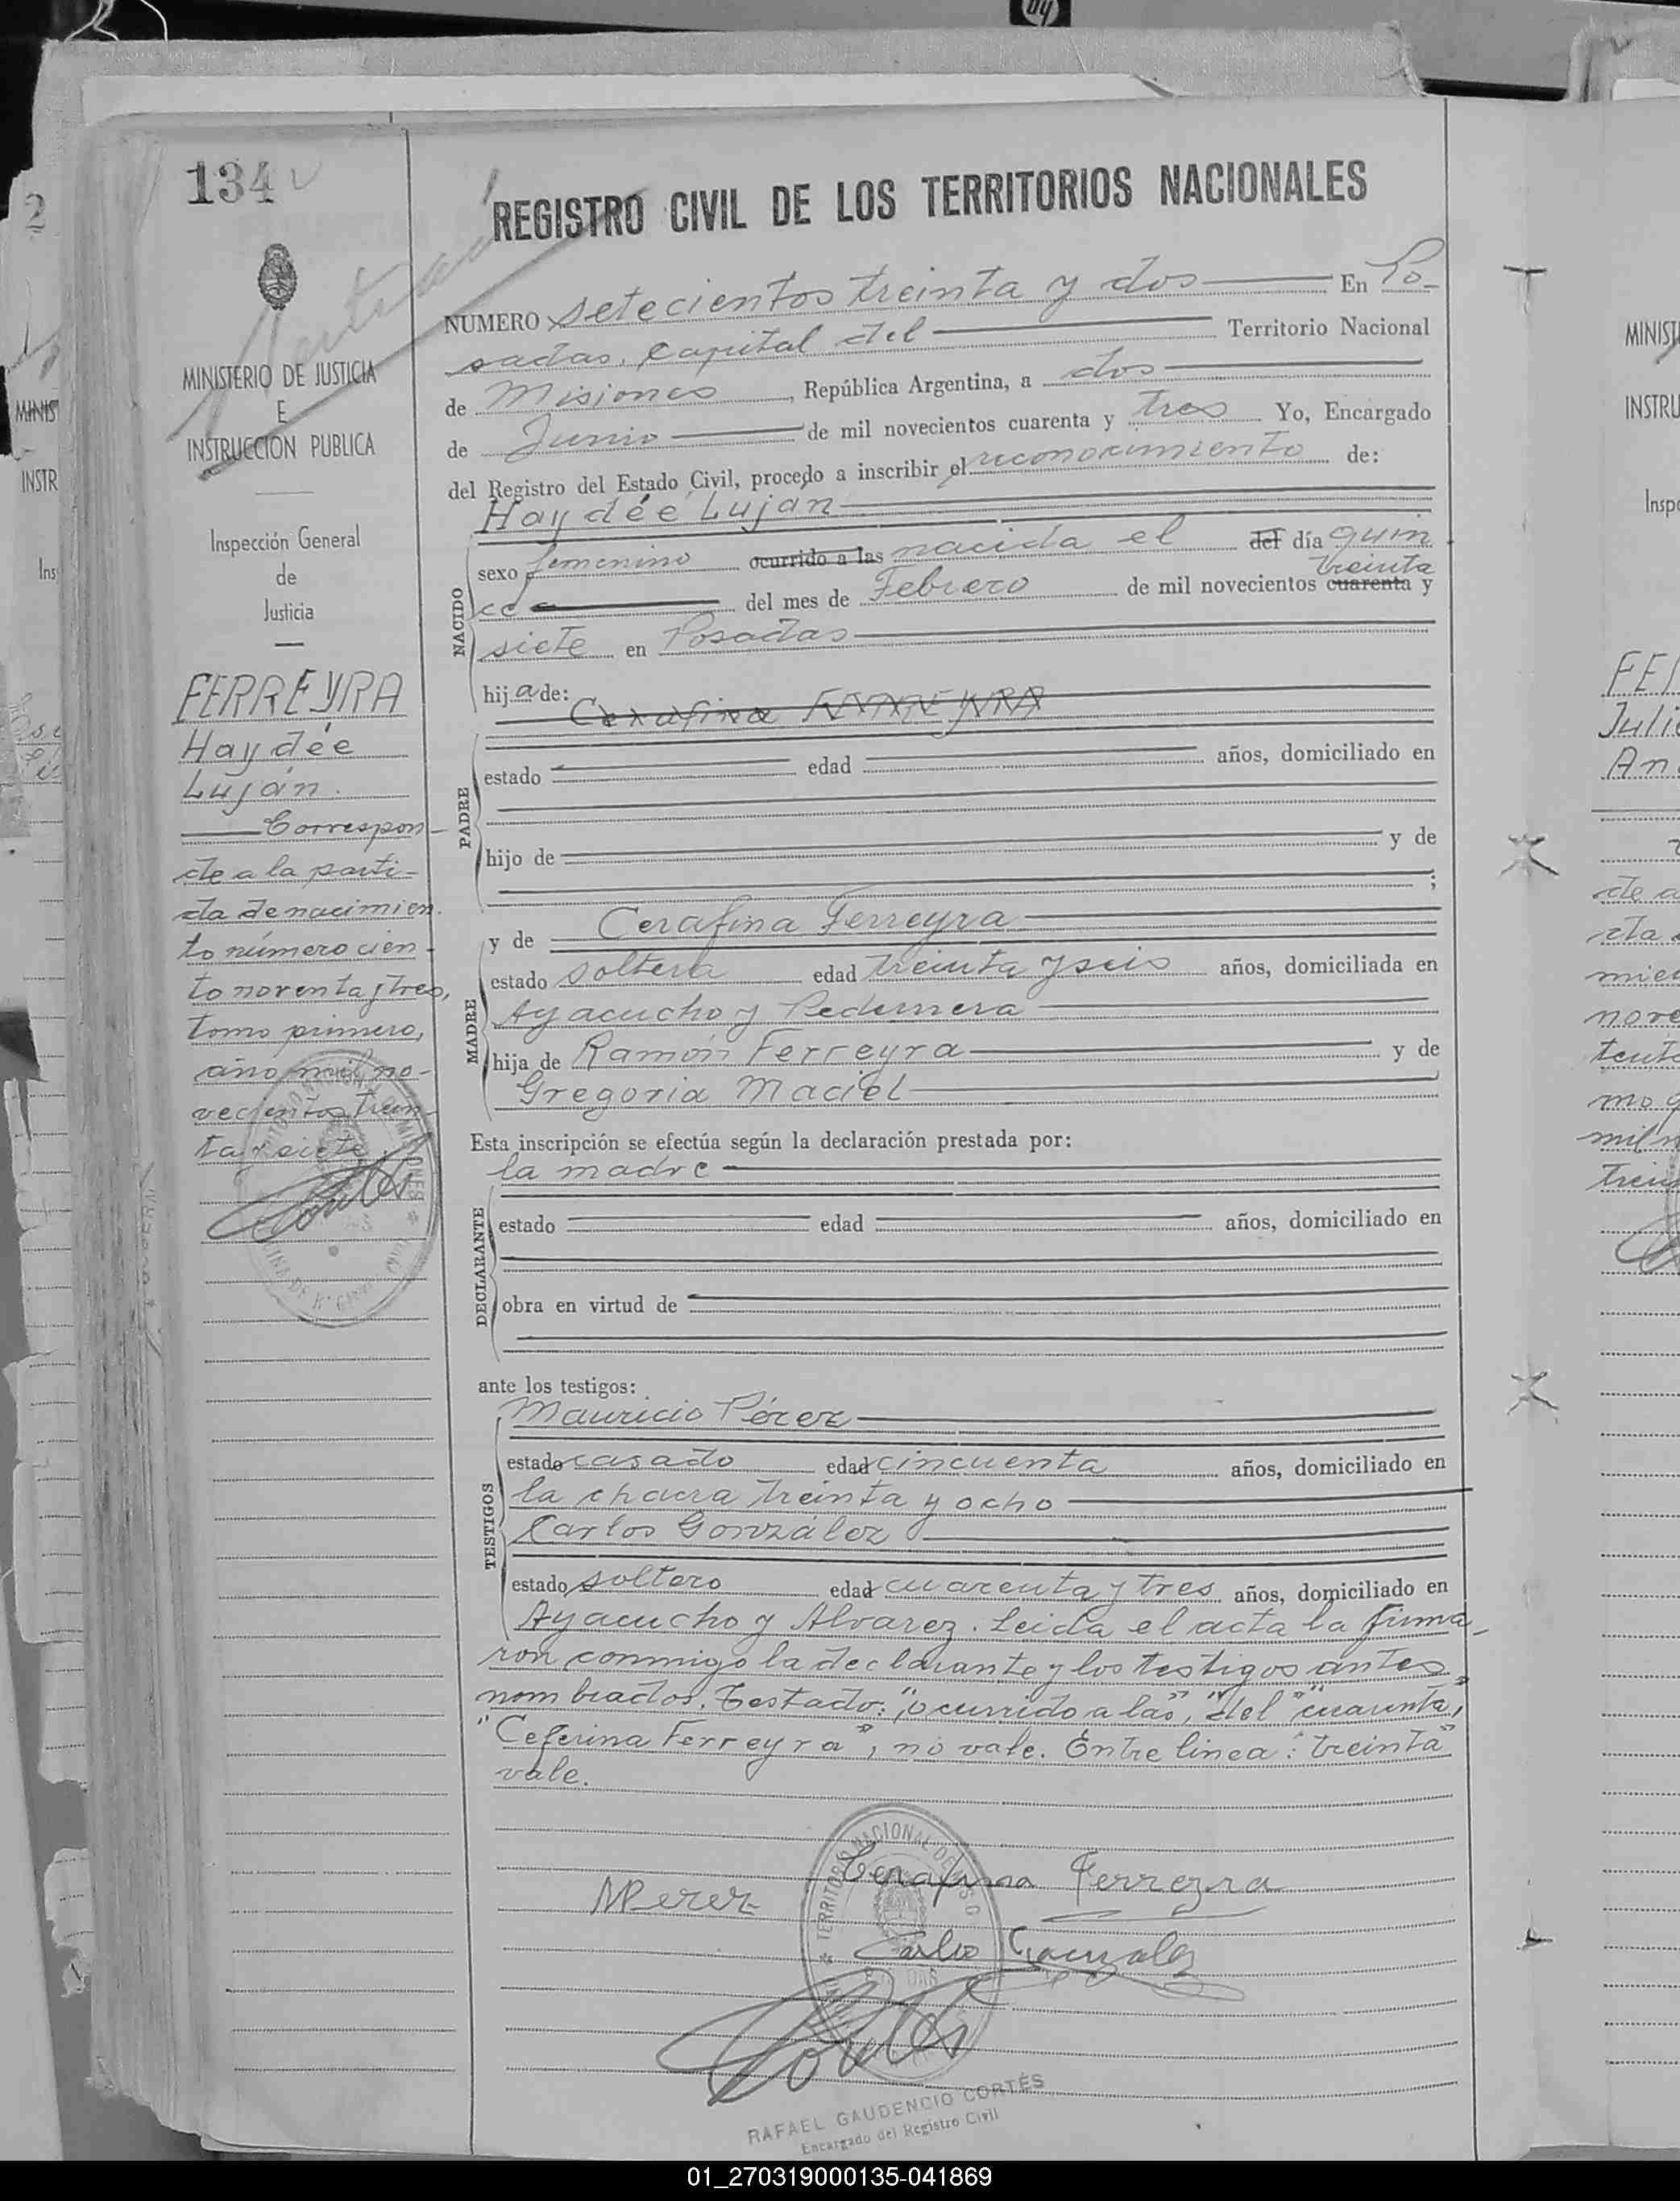 hp
134
REGISTRO CIVIL DE LOS TERRITORIOS NACIONALES
NUMERO setecientos treinta y dos En Po-
sadas, Capital del Territorio Nacional
de Misiones, República Argentina, a dos
de Junio de mil novecientos cuarenta y tres Yo, Encargado
del Registro del Estado Civil, procedo a inscribir el reconocimiento de:
Haydée Luján
NACIDO
sexo femenino ocurrido a las nacida el del día quin
treinta
ce del mes de Febrero de mil novecientos cuarenta y
siete en Posadas
hija de:
FERREYRA
PADRE
estado edad años, domiciliado en
hijo de y de
;
y de Cerafina Ferreyra
MADRE
estado soltera edad treinta y seis años, domiciliada en
Ayacucho y Pedernera
hija de Ramón Ferreyra y de
Gregoria Maciel
Esta inscripción se efectúa según la declaración prestada por:
la madre
DECLARANTE
estado edad años, domiciliado en
obra en virtud de
ante los testigos:
Mauricio Pérez
TESTIGOS
estado casado edad cincuenta años, domiciliado en
la chacra treinta y ocho
Carlos González
estado soltero edad cuarenta y tres años, domiciliado en
Ayacucho y Alvarez. Leida el acta la firma-
ron conmigo la declarante y los testigos antes
nombrados. Testado: "ocurrido a las", "del" "cuarenta",
"Ceferina Ferreyra", no vale. Entre linea: "treinta"
vale.
MPerez
Cerafina Ferreyra
Carlos Gonzalez
RAFAEL GAUDENCIO CORTÉS
Encargado del Registro Civil
MINISTERIO DE JUSTICIA
E
INSTRUCCION PUBLICA
Inspección General
de
Justicia
FERREYRA
Haydée
Luján.
Correspon-
de a la parti-
da de nacimien-
to número cien-
to noventa y tres,
tomo primero,
año mil no-
vecientos trein-
ta y siete.
2
MINIS
INSTR
Ins
MINIST
INSTRU
Inspe
FE
Juli
An
de a
da
mien
nove
mo
mil n
trein
01_270319000135-041869